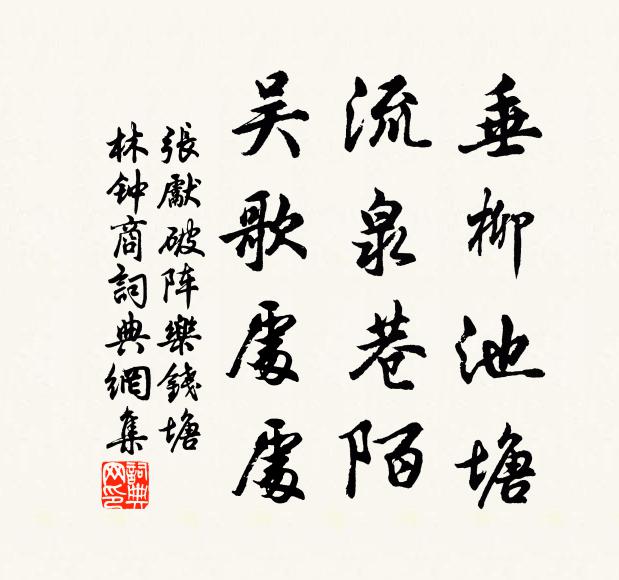 垂柳池塘
流泉巷陌
吴歌處處
張獻破阵樂錢塘
林钟商詞典網集
詞典网印